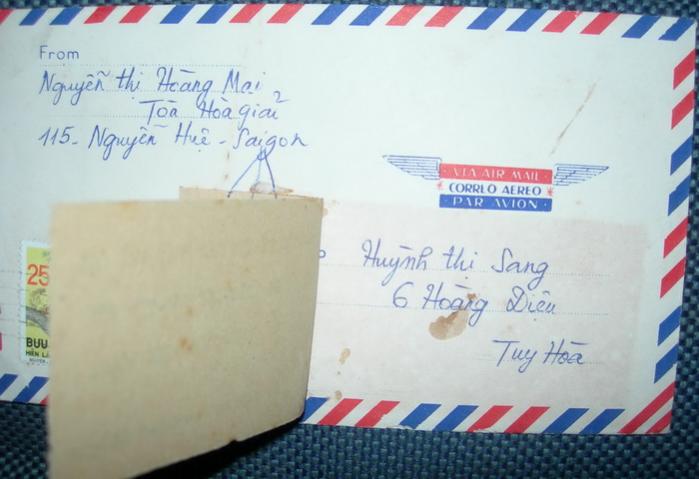 From
Nguyễn thị Hoàng Mai
Tòa Hòa giải
115- Nguyễn Huệ - Saigon
VIA AIR MAIL
CORRLO AEREO
PAR AVION
Huỳnh thị Sang
6 Hoàng Diệu
Tuy Hòa
25
BUU
HIẾN